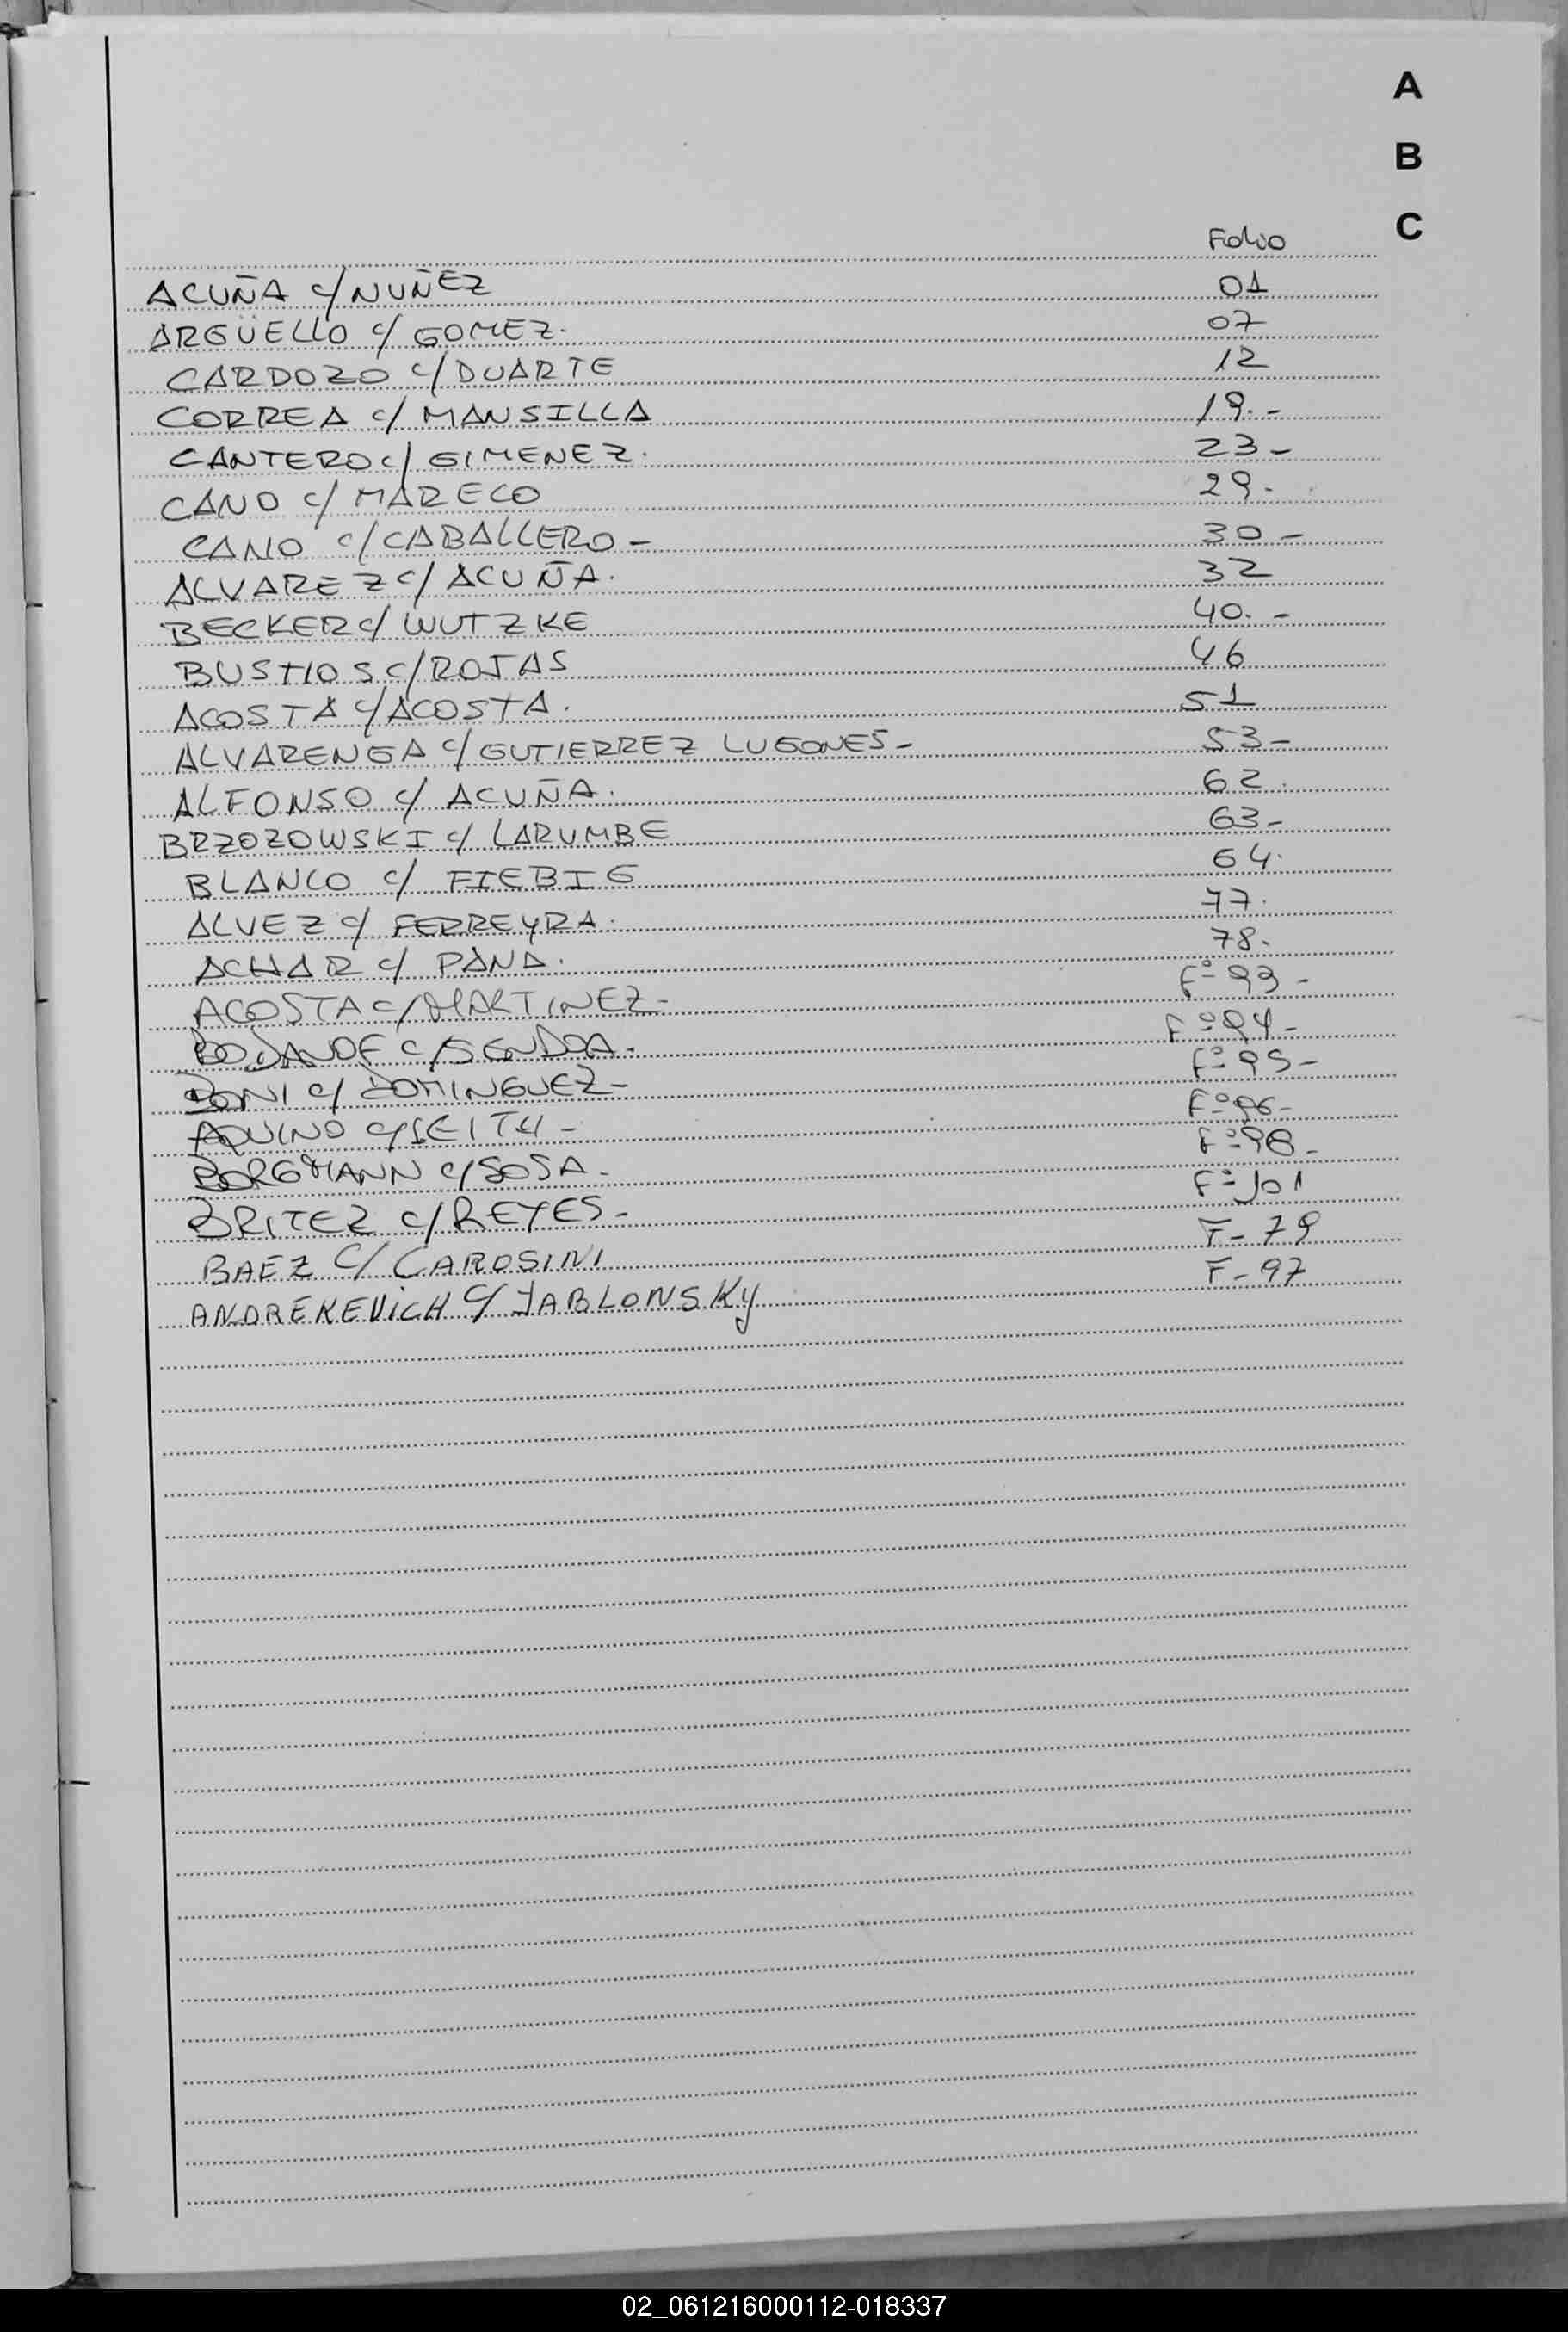 A
B
C
Folio
ACUÑA c/ NUÑEZ 01
ARGÜELLO c/ GOMEZ. 07
CARDOZO c/ DUARTE 12
CORREA c/ MANSILLA 19.-
CANTERO c/ GIMENEZ. 23-
CANO c/ MARECO 29.
CANO c/ CABALLERO- 30-
ALVAREZ c/ ACUÑA. 32
BECKER c/ WUTZKE 40.-
BUSTIOS c/ ROJAS 46
ACOSTA c/ ACOSTA. 51
ALVARENGA c/ GUTIERREZ LUGONES- 53-
ALFONSO c/ ACUÑA. 62.
BRZOZOWSKI c/ LARUMBE 63-
BLANCO c/ FIEBIG 64.
ALVEZ c/ FERREYRA. 77.
ACHAR c/ PANA. 78.
ACOSTA c/ MARTINEZ- Fº 93-
c/ Fº 94-
BONI c/ DOMINGUEZ- Fº 95-
AQUINO c/ Fº 96-
BORGMANN c/ SOSA- Fº 98-
BRITEZ c/ REYES- Fº 101
BAEZ c/ CAROSINI F- 79
ANDREKEVICH c/ YABLONSKY F- 97
02_061216000112-018337